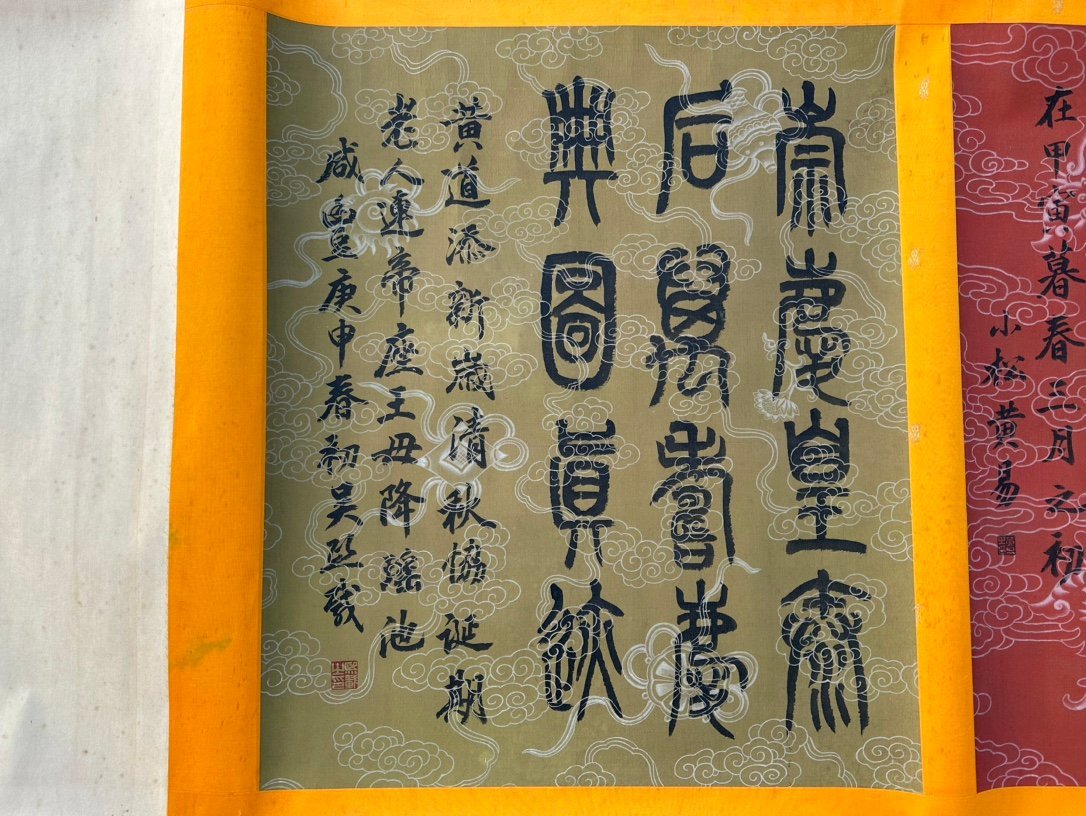 在甲寅暮春三月之初
小松黄易
崇慶皇太
后萬壽慶
典圖真迹
黄道添新歲清秋協誕期
老人連帝座王母降瑤池
咸豐庚申春初吴熙載